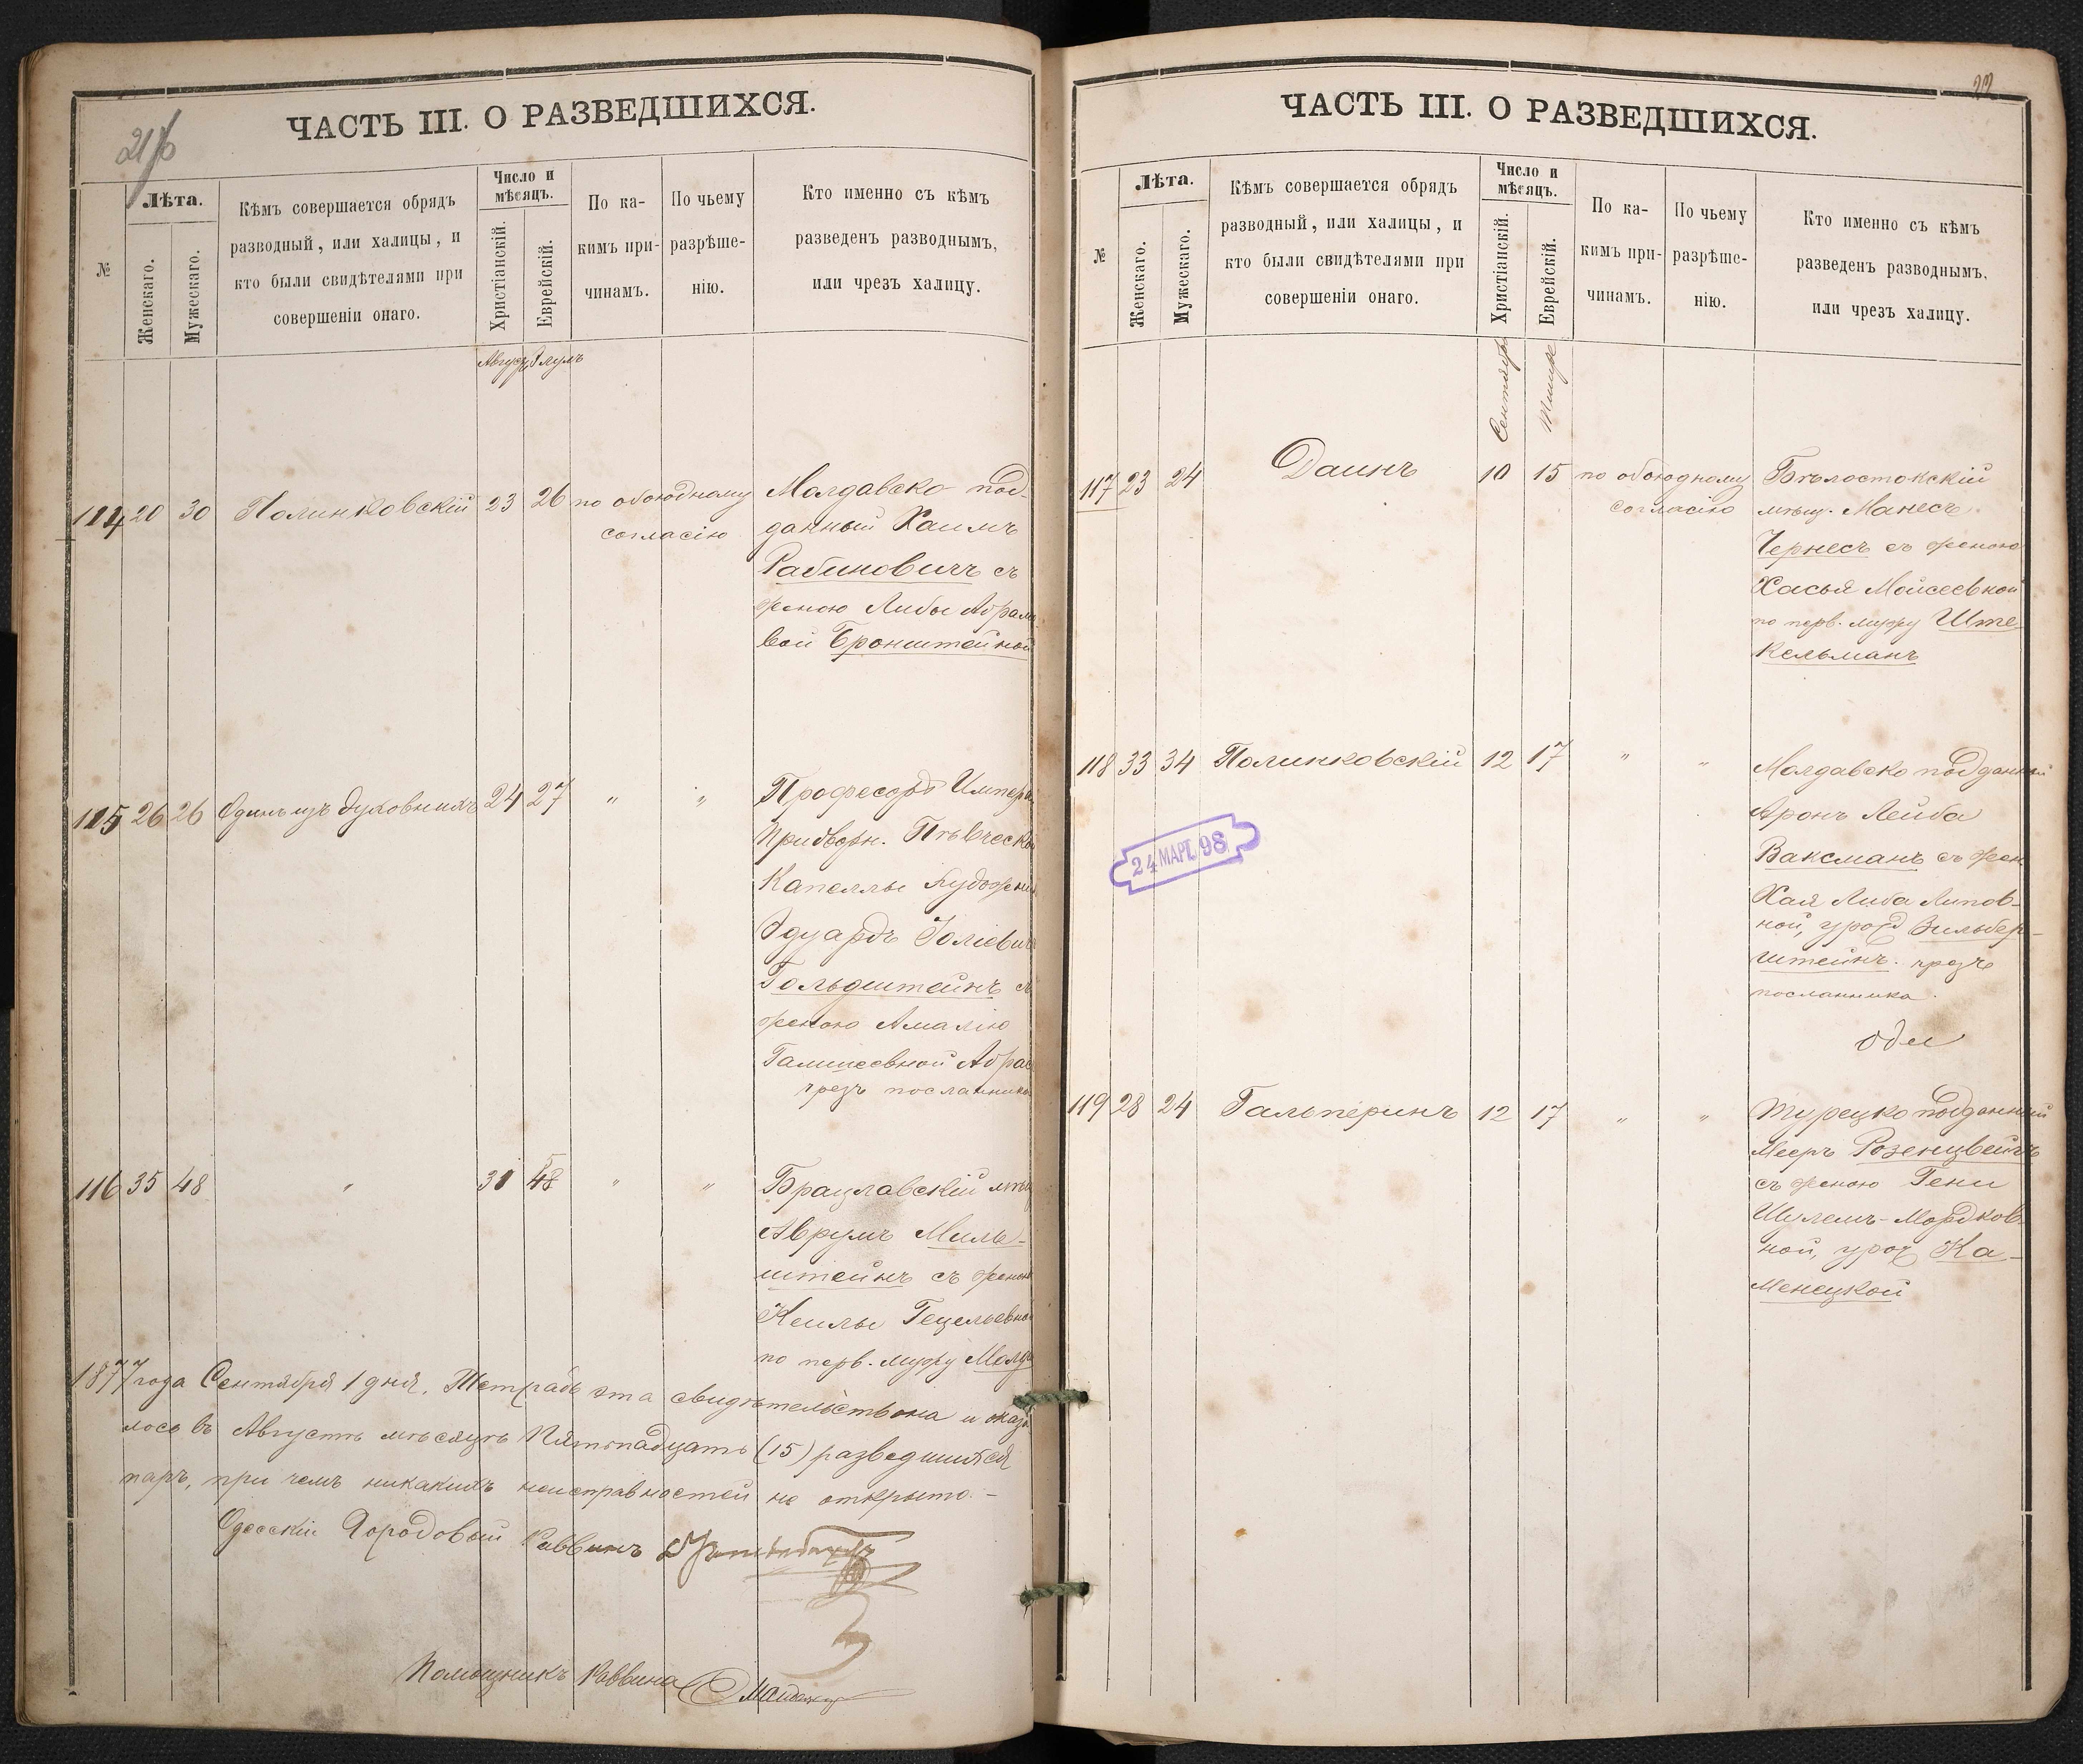 21/б
ЧАСТЬ III. О РАЗВЕДШИХСЯ.
№
Лѣта.
Женскаго.
Мужескаго.
Кѣмъ совершается обрядъ
разводный, или халицы, и
кто были свидѣтелями при
совершеніи онаго.
Число и
мѣсяцъ.
Христіанскій.
Еврейскій.
По ка-
кимъ при-
чинамъ.
По чьему
разрѣше-
нію.
Кто именно съ кѣмъ
разведенъ разводнымъ,
или чрезъ халицу.
Августъ Элулъ
114 20 30 Полинковскій 23 26 по обоюдному
согласію
Молдавско под-
данный Хаимъ
Рабиновичъ съ
женою Либы Абрамо
вой Бронштейной
115 26 26 Одинъ изъ духовныхъ 24 27 " "
Професоръ Импера
Придворн. Пѣвческой
Капеллы
Эдуардъ Юліевичъ
Гольдштейнъ съ
женою Амалію
чрезъ посланника
116 35 48 " 31 " "
Брацлавскій мѣщ
Аврумъ Миль-
штейнъ съ женою
Кеилы Гецельевной
по перв. мужу
1877 года Сентября 1 дня. Тетрадь эта свидѣтельствована и оказа
лось въ Августѣ мѣсяцѣ Пятнадцать (15) разведшихся
паръ, при чемъ никакихъ неисправностей не открыто.-
Одесскій Городовый Раввинъ
Помощникъ Раввина
22
ЧАСТЬ III. О РАЗВЕДШИХСЯ.
№
Лѣта.
Женскаго.
Мужескаго.
Кѣмъ совершается обрядъ
разводный, или халицы, и
кто были свидѣтелями при
совершеніи онаго.
Число и
мѣсяцъ.
Христіанскій.
Еврейскій.
По ка-
кимъ при-
чинамъ.
По чьему
разрѣше-
нію.
Кто именно съ кѣмъ
разведенъ разводнымъ,
или чрезъ халицу.
Сентябрь
Тишре
117 23 24 Даинъ 10 15 по обоюдному
согласію
Бѣлостокскій
мѣщ. Манесъ
Чернесъ съ женою
Хасья Мойсеевной
по перв. мужу Ште-
кельманъ
118 33 34 Полинковскій 12 17 " "
Молдавско подданный
Аронъ Лейба
Ваксманъ съ жен
Хая Либа Липов-
ной, урожд Зильбер-
штейнъ. чрезъ
посланника.
24 МАРТ. 98
119 28 24 Гальперинъ 12 17 " "
Турецко подданный
Мееръ Розенцвейгъ
съ женою Гени
Шулемъ-Мордков-
ной, урож Ка-
менецкой